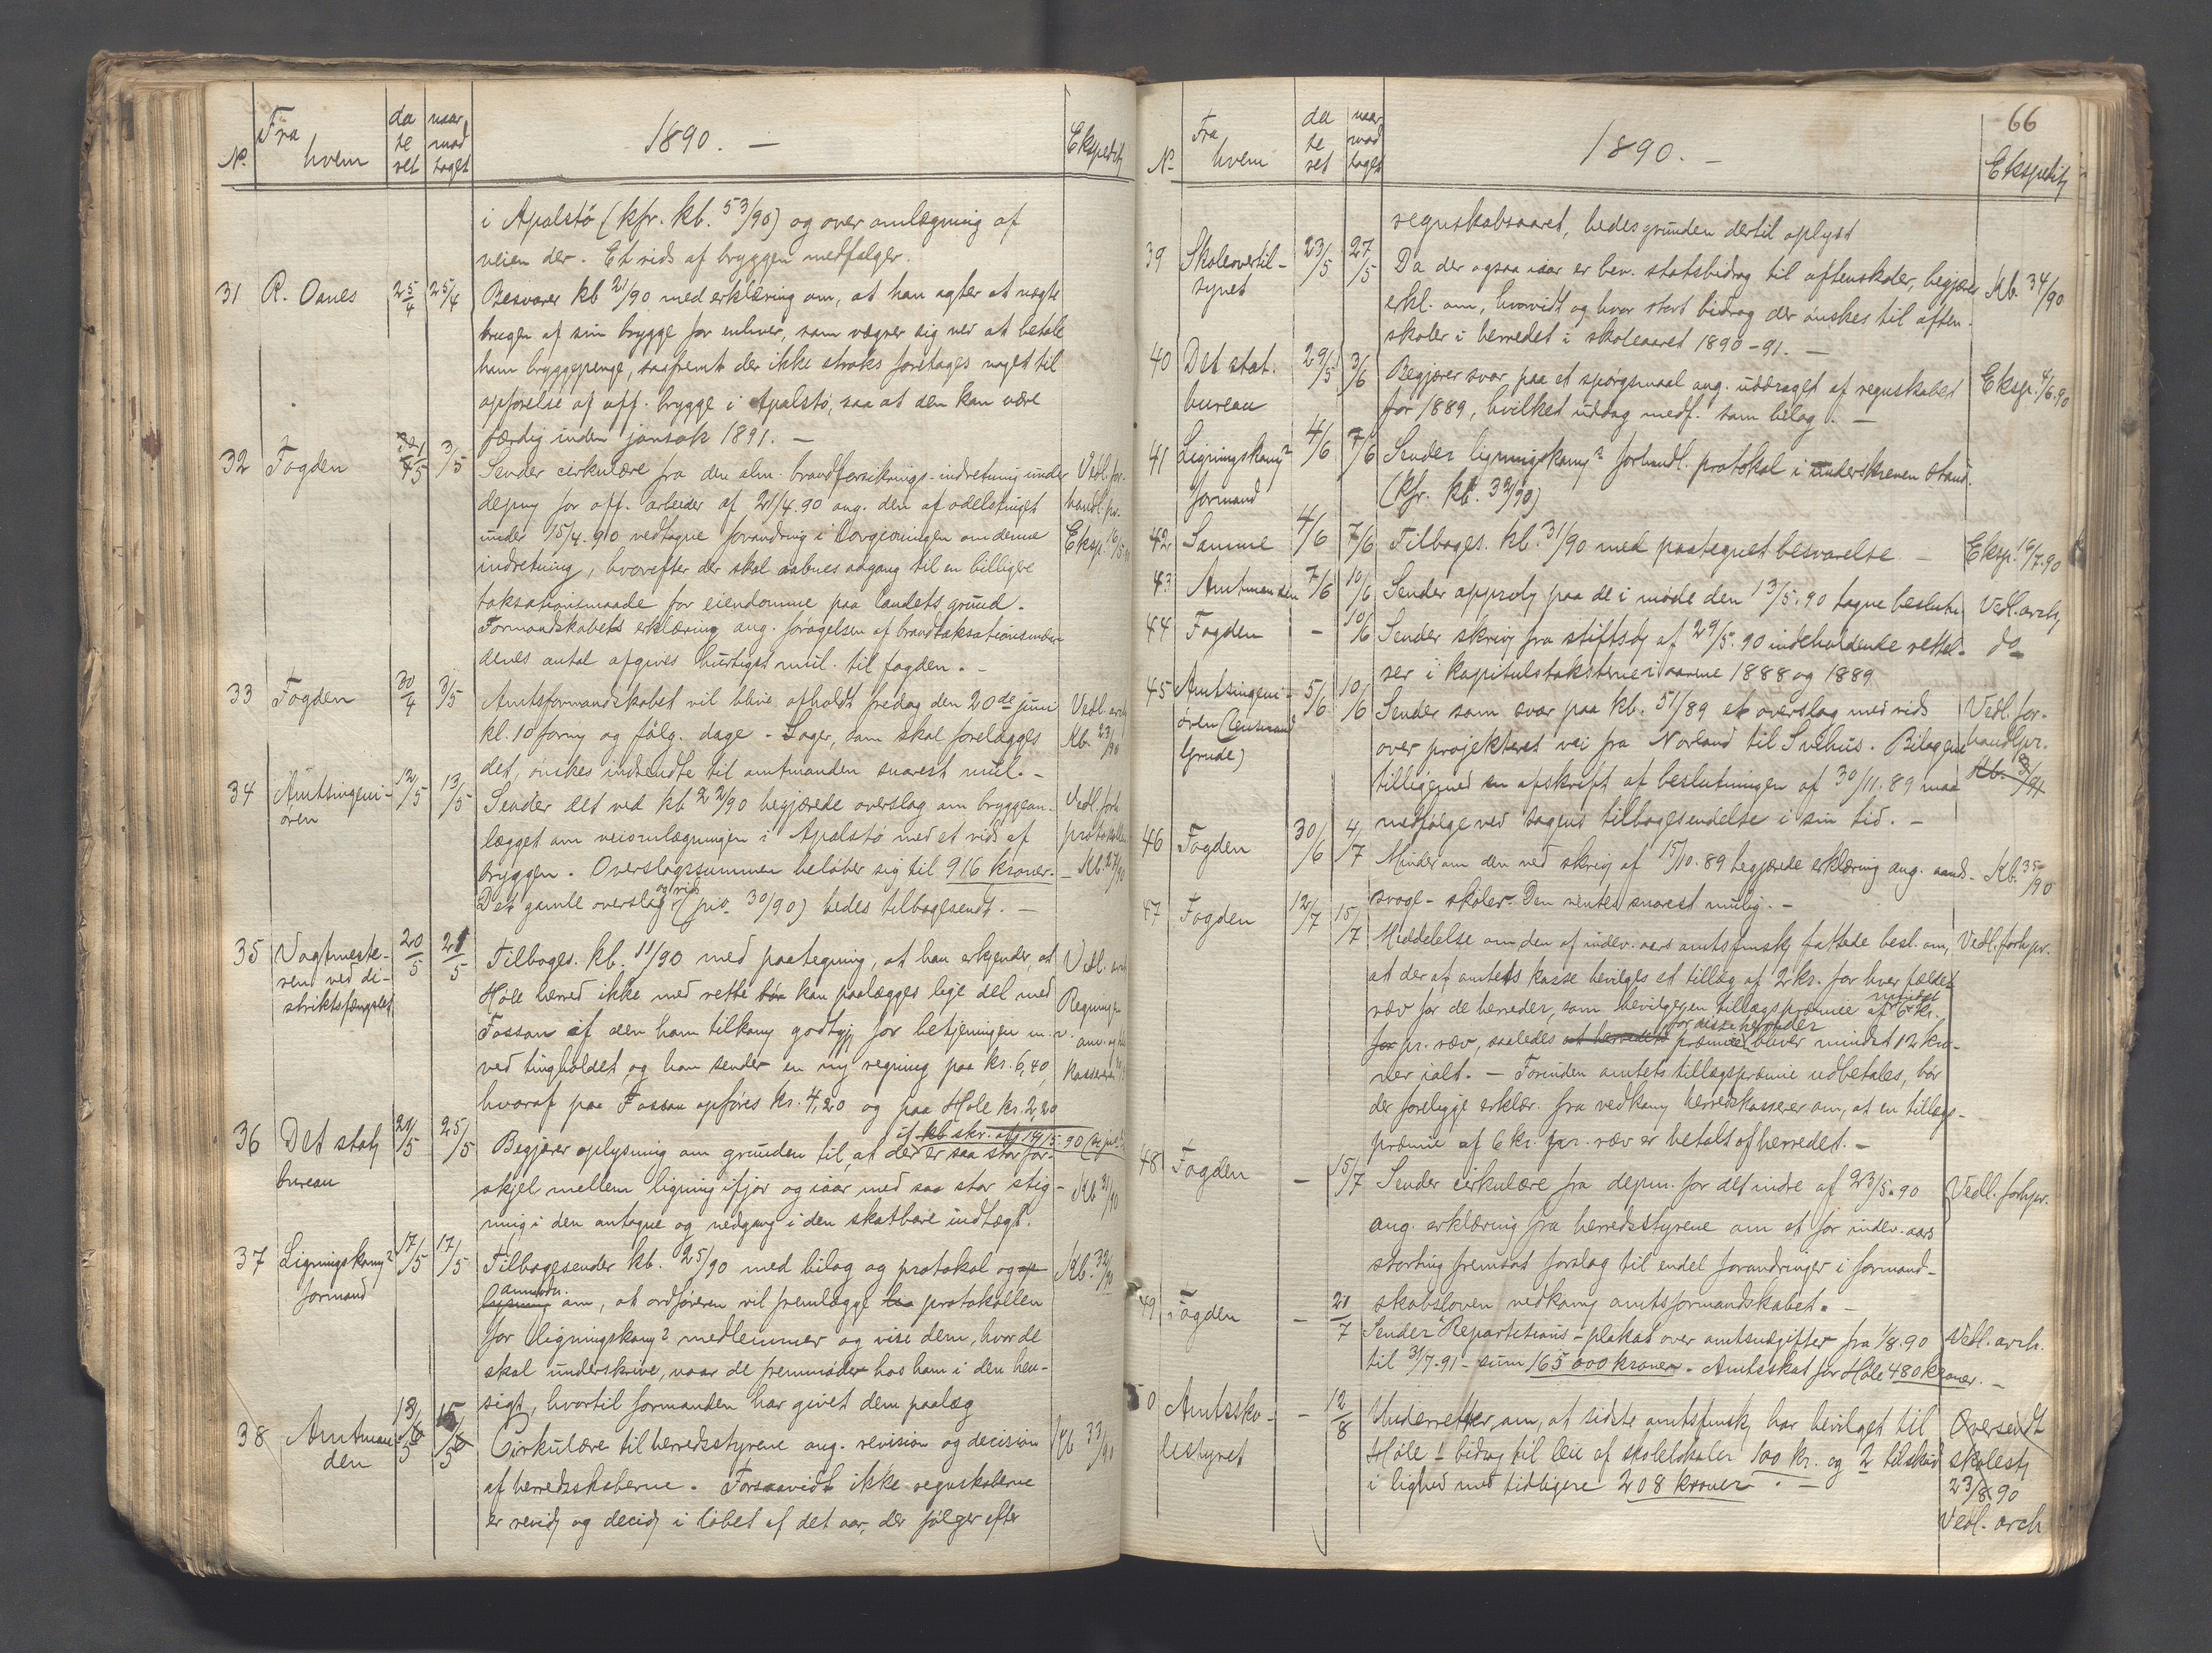 No. Fra hvem dateret naar modtaget 1890. – Ekspedit
i Apalstö (kfr. kb. 53/90) og over omlægning af
veien der. Et rids af bryggen medfølger.
31 R. Oanes 25/4 25/4 Besvarer kb 21/90 med erklæring om, at han agter at nægte
brugen af sin brygge for enhver, som vægrer sig ved at betale
ham bryggepenge, saafremt der ikke straks foretages noget til
opførelse af off. brygge i Apalstö, saa at den kan være
færdig inden jonsok 1891. –
32 Fogden 3/5 Sender cirkulære fra den alm. brandforsikrings-indretning under Vedl. for-
depmg for off. arbeider af 21/4.90 ang. den af odelstinget handl. pr.
under 15/4.90 vedtagne forandring i lovgivningen om denne Eksp. 16/5
indretning, hvorefter der skal aabnes adgang til en billigere
taksationsmaade for eiendomme paa landets grund.
Formandskabets erklæring ang. forøgelsen af brandtaksationsmæn-
denes antal afgives hurtigst mul. til fogden. –
33 Fogden 30/4 3/5 Amtsformandskabet vil blive afholdt fredag den 20de juni Vedl. arch
kl. 10 formg og følg. dage. Sager, som skal forelægges Kb. 23/90
det, önskes indsendte til amtmanden snarest mul. –
34 Amtsingeni- 12/5 13/5 Sender det ved kb 22/90 begjærede overslag om bryggean- Vedl. forh
ören lægget om veiomlægningen i Apalstø med et rids af protokollen
bryggen. Overslagssummen beløber sig til 916 kroner. – Kb. 27/90
Det gamle overslag og rids (jno. 30/90) bedes tilbagesendt. –
35 Vagtmeste- 20/5 21/5 Tilbages. kb. 11/90 med paategning, at han erkjender, at Vedl.
ren ved di- Höle herred ikke med rette kan paalægges lige del med Regningen
striktsfængslet Fossan af den ham tilkomg godtgj for betjeningen m. v. anv.
ved tingholdet og han sender en ny regning paa kr. 6,40, kassereren
hvoraf paa Fossan opføres kr. 4,20 og paa Høle kr. 2,20
if. kb skr. af 19/5 90
36 Det statj 5 25/5 Begjærer oplysning om grunden til, at der er saa stor for-
bureau skjel mellem ligning ifjor og iaar med saa stor stig- Kb 31/90
ning i den antagne og nedgang i den skatbare indtægt.
37 Ligningskom? 17/5 17/5 Tilbagesender kb. 25/90 med bilag og protokol og op Kb. 32/90
formand lysning anmodn. om, at ordføreren vil fremlægge protokollen
for ligningskom? medlemmer og vise dem, hvor de
skal underskrive, naar de fremmøder hos ham i den hen-
sigt, hvortil formanden har givet dem paalæg
38 Amtman- 13/5 15/5 Cirkulære til herredsstyrene ang. revision og decision Kb 33/90
den af herredsskaberne. Forsaavidt ikke regnskaberne
er revidj og decidj i løbet af det aar, der følger efter
66
No. Fra hvem dateret naar modtaget 1890. – Ekspedit
regnskabsaaret, bedes grunden dertil oplyst
39 Skoleovertil- 23/5 27/5 Da der ogsaa iaar er bev. statsbidrag til aftenskoler, begjæres Kb. 34/90
synet erkl. om, hvorvidt og hvor stort bidrag der önskes til aften-
skoler i herredet i skoleaaret 1890-91. –
40 Det stat. 29/5 3/6 Begjærer svar paa et spörgsmaal ang. uddraget af regnskabet Eksp. 4/6.90
bureau for 1889, hvilket uddrag medf. som bilag. –
41 Ligningskom? 4/6 7/6 Sender ligningskom? forhandl. protokol i underskreven stand.
formand (kfr. kb. 32/90)
42 Samme 4/6 7/6 Tilbages. kb. 31/90 med paategnet besvarelse. – Eksp. 16/7.90
43 Amtmanden 7/6 10/6 Sender approbj paa de i møde den 13/5.90 tagne beslutn. Vedl. arch
44 Fogden – 10/6 Sender skriv fra stiftsdj af 29/5.90 indeholdende rettel- do
ser i kapitulstaksterne i aarene 1888 og 1889
45 Amtsingeni- 5/6 10/6 Sender som svar paa kb. 51/89 et overslag med rids Vedl. for-
ören (Lensmand over projekteret vei fra Norland til Svihus. Bilagene handl pr.
Grude) tilligemed en afskrift af beslutningen af 30/11.89 maa Kb. 3/91
medfølge ved sagens tilbagesendelse i sin tid. –
46 Fogden 30/6 4/7 Minder om den ved skriv af 15/10.89 begjærede erklæring ang. aands- Kb. 35/90
svage-skoler. Den ventes snarest mulig. –
47 Fogden 12/7 15/7 Meddelelse om den af indev. aars amtsfmskj fattede besl. om, Vedl. forh pr.
at der af amtets kasse bevilges et tillæg af 2 kr. for hver fældet
ræv for de herreder, som bevilger en tillægspræmie af mindst 6 kr.
for pr. ræv, saaledes at herredets præmie for disse herreder bliver mindst 12 kro-
ner ialt. – Forinden amtets tillægspræmie udbetales, bör
der foreligge erklær. fra vedkomg herredskasserer om, at en tillægs-
præmie af 6 kr. pr. ræv er betalt af herredet. –
48 Fogden – 15/7 Sender cirkulære fra depm. for det indre af 23/5.90 Vedl. forh pr.
ang. erklæring fra herredsstyrene om et for indev. aars
storting fremsat forslag til endel forandringer i formand-
skabsloven vedkomg amtsformandskabet. –
49 Fogden – 21/7 Sender Repartitions-plakat over amtsudgifter fra 1/8.90 Vedl. arch.
til 31/7.91 – sum 165 000 kroner. Amtsskat for Höle 480 kroner. –
50 Amtssko- – 12/8 Underretter om, at sidste amtsfmskj har bevilget til Oversendt
lestyret Höle 1 bidrag til leie af skolelokaler 100 kr. og 2 tilskud skolestj
i lighed med tidligere 208 kroner. – 23/8.90
Vedl. arch